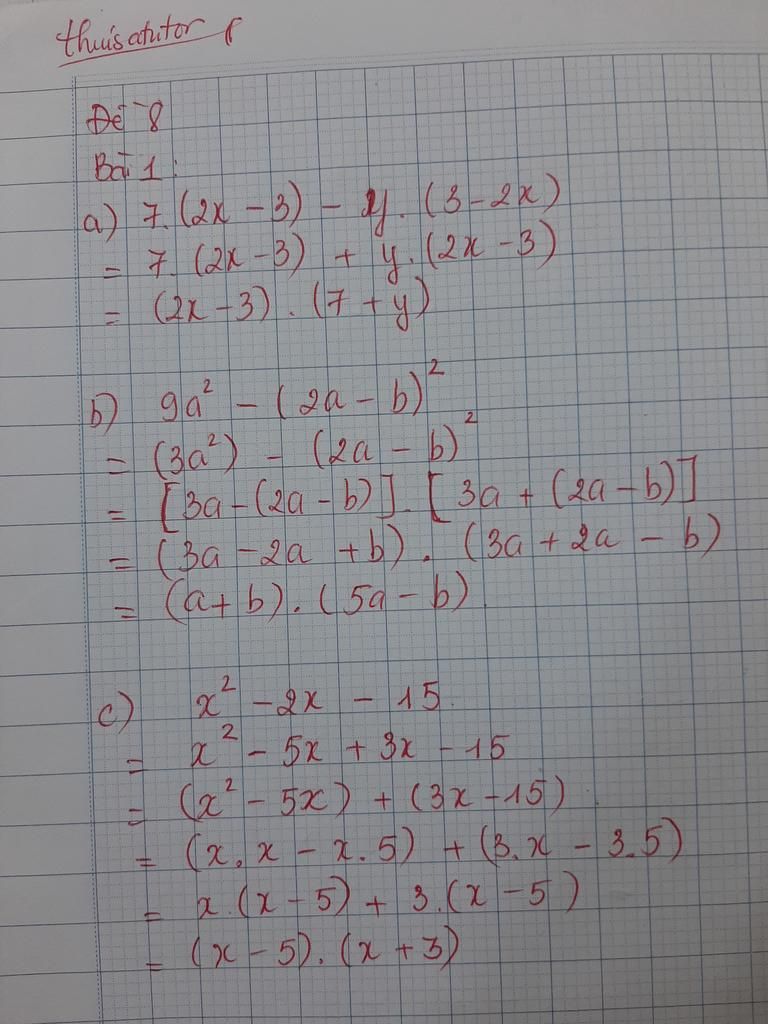 thuisatutor
Đề 8
Bài 1:
a) 7.(2x - 3) - y.(3 - 2x)
= 7.(2x - 3) + y.(2x - 3)
= (2x - 3).(7 + y)
b) 9a² - (2a - b)²
= (3a²) - (2a - b)²
= [3a - (2a - b)].[3a + (2a - b)]
= (3a - 2a + b).(3a + 2a - b)
= (a + b).(5a - b)
c) x² - 2x - 15
= x² - 5x + 3x - 15
= (x² - 5x) + (3x - 15)
= (x.x - x.5) + (3.x - 3.5)
= x.(x - 5) + 3.(x - 5)
= (x - 5).(x + 3)